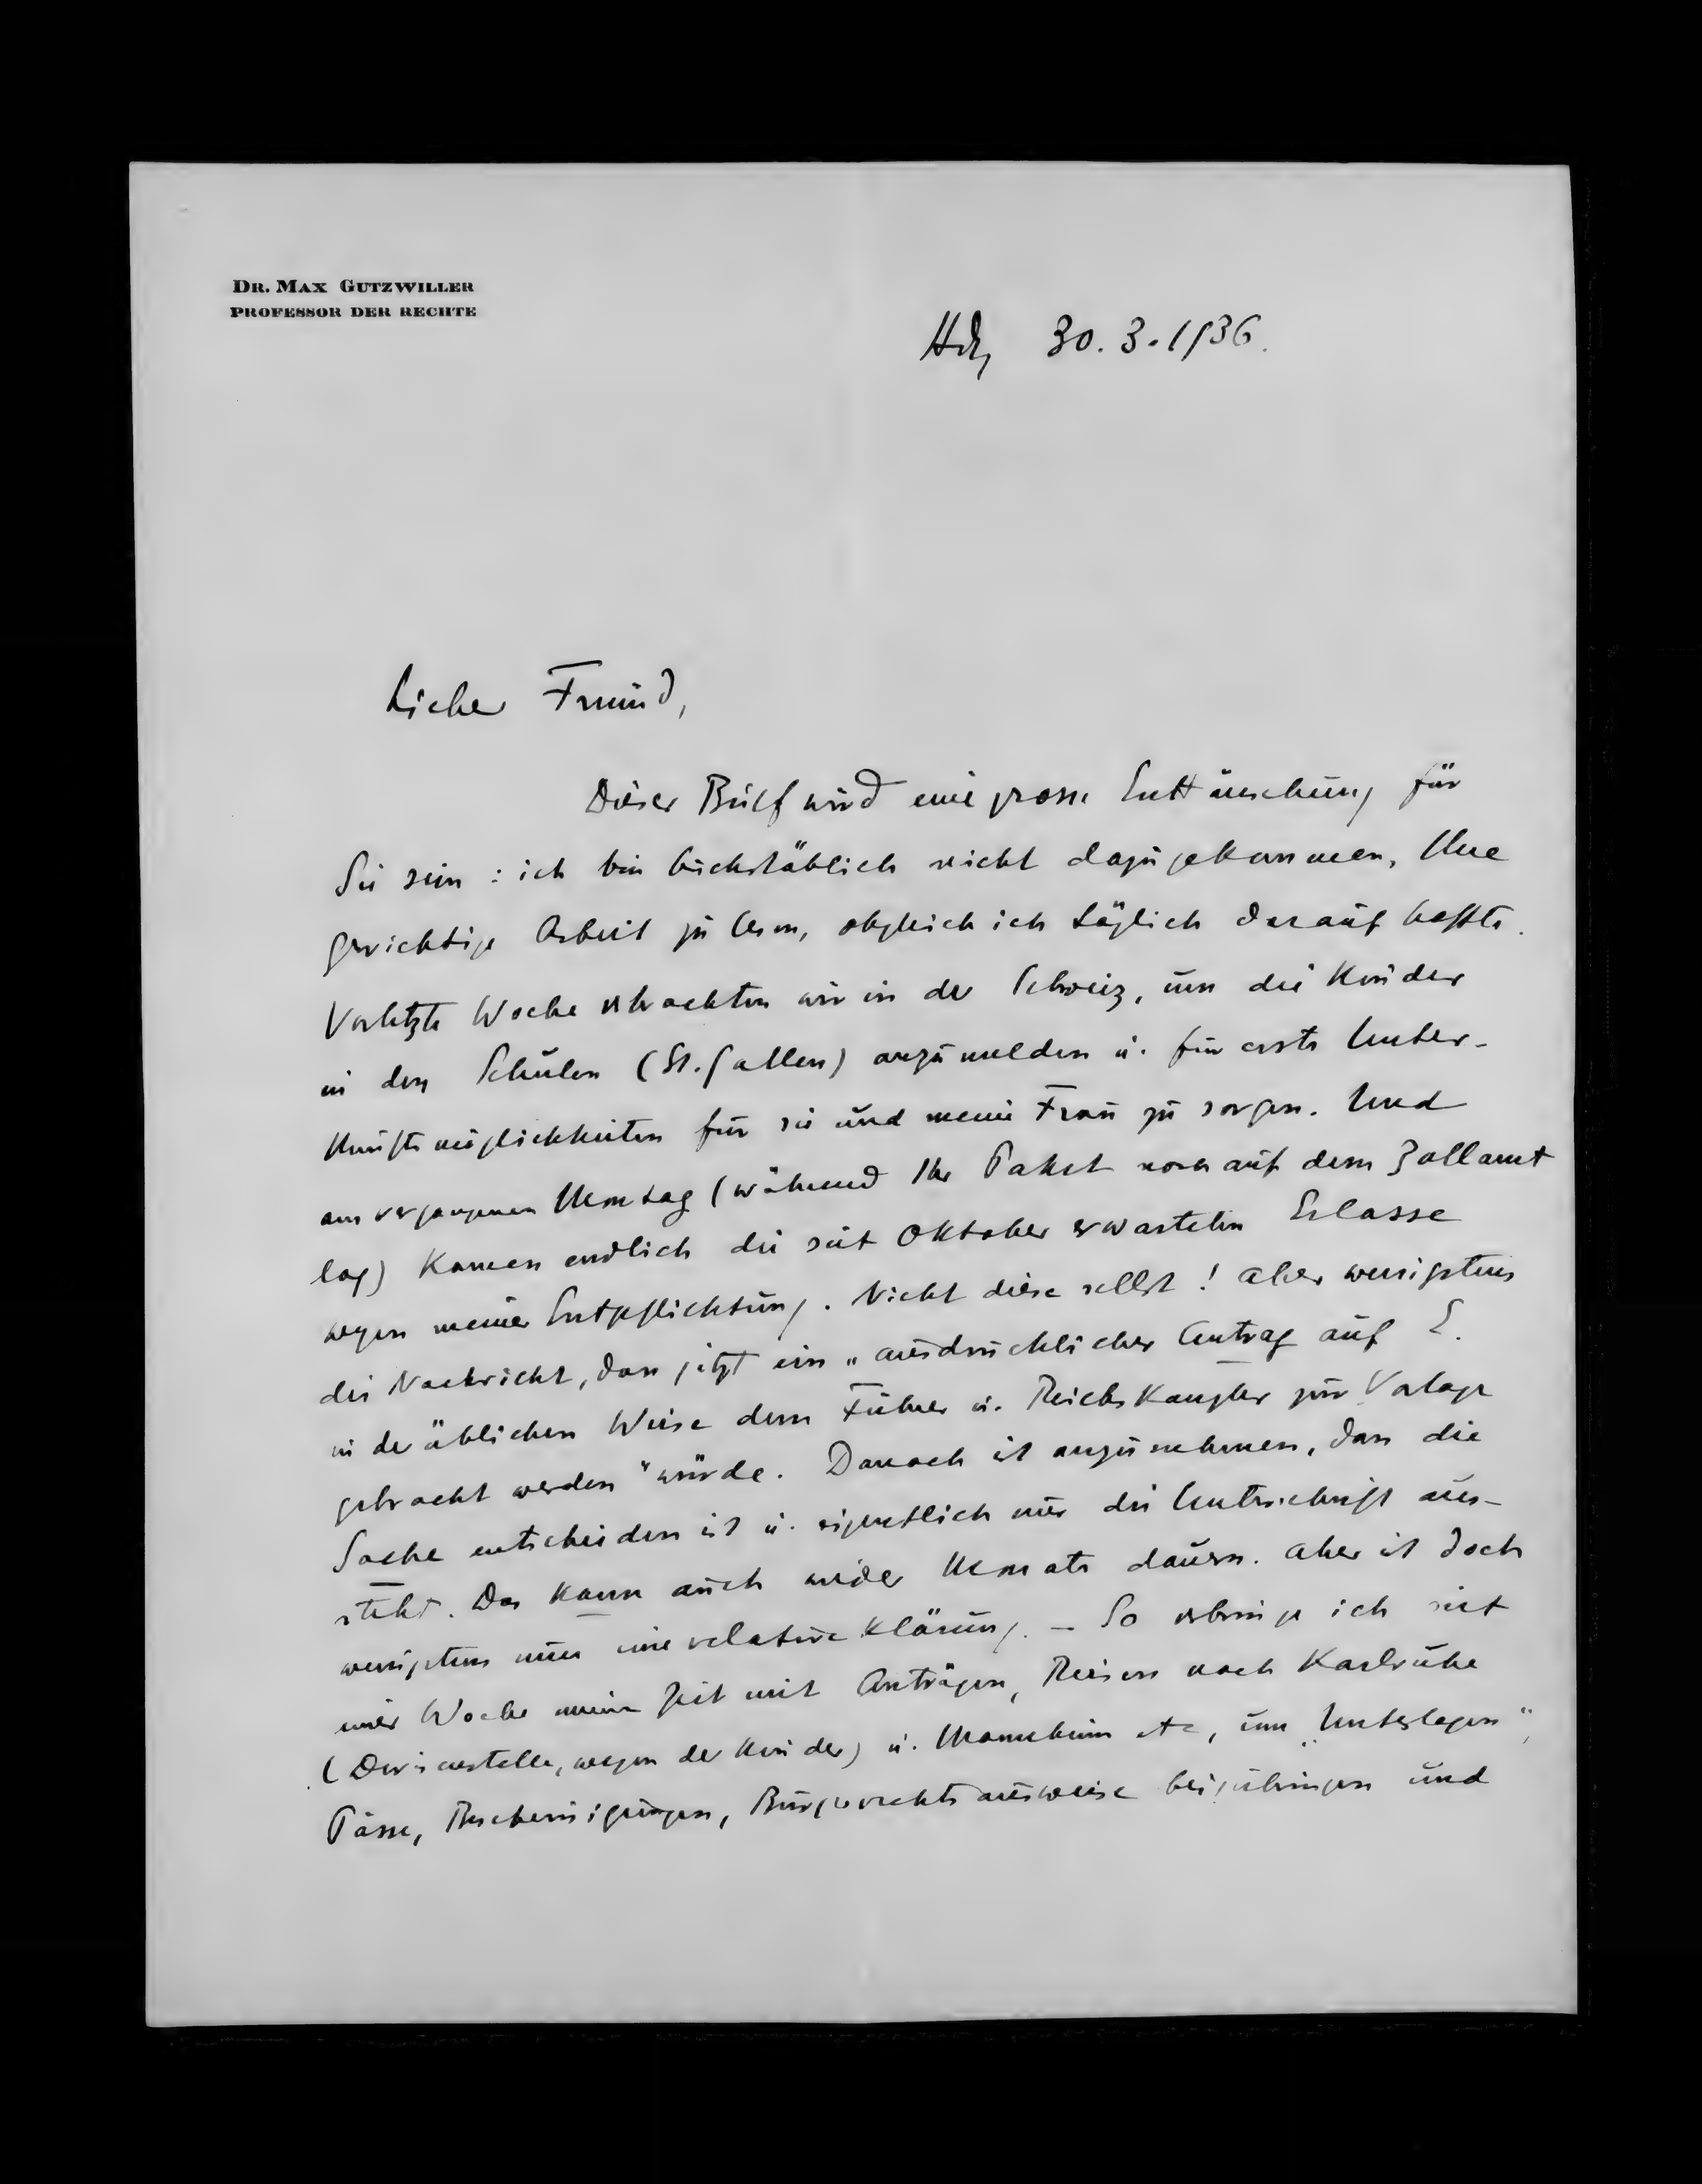 DR. MAX GUTZWILLER
PROFESSOR DER RECHTE
Hdg 30.3.1936.
Lieber Freund,
Dieser Brief wird eine grosse Enttäuschung für
Sie sein: ich bin buchstäblich nicht dazu gekommen, Ihre
gewichtige Arbeit zu lesen, obgleich ich täglich darauf hoffte.
Vorletzte Woche verbrachten wir in der Schweiz, um die Kinder
in den Schulen (St. Gallen) anzumelden u. für erste Unter-
kunftsmöglichkeiten für sie und meine Frau zu sorgen. Und
am vergangenen Montag (während Ihr Paket noch auf dem Zollamt
lag) kamen endlich die seit Oktober erwarteten Erlasse
wegen meiner Entpflichtung. Nicht diese selbst! Aber wenigstens
die Nachricht, dass jetzt ein „ausdrücklicher Antrag auf E.
in der üblichen Weise dem Führer u. Reichskanzler zur Vorlage
gebracht werden" würde. Danach ist anzunehmen, dass die
Sache entschieden ist u. eigentlich nur die Unterschrift aus-
steht. Das kann auch wieder Monate dauern. Aber ist doch
wenigstens nun eine relative Klärung. – So verbringe ich seit
einer Woche meine Zeit mit Anträgen, Reisen nach Karlsruhe
(Devisenstelle, wegen der Kinder) u. Mannheim etc, um „Unterlagen",
Pässe, Bescheinigungen, Bürgerrechtsausweise beizubringen und